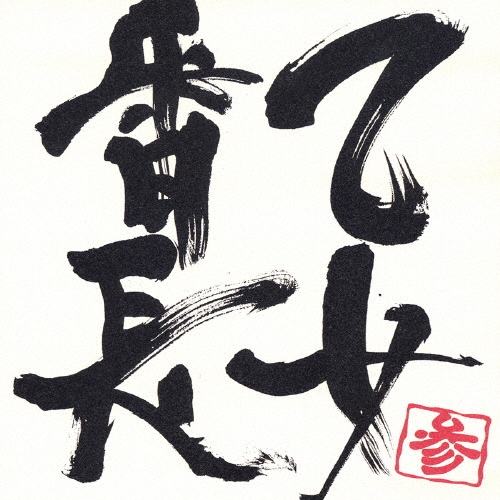 乙女
番長
参